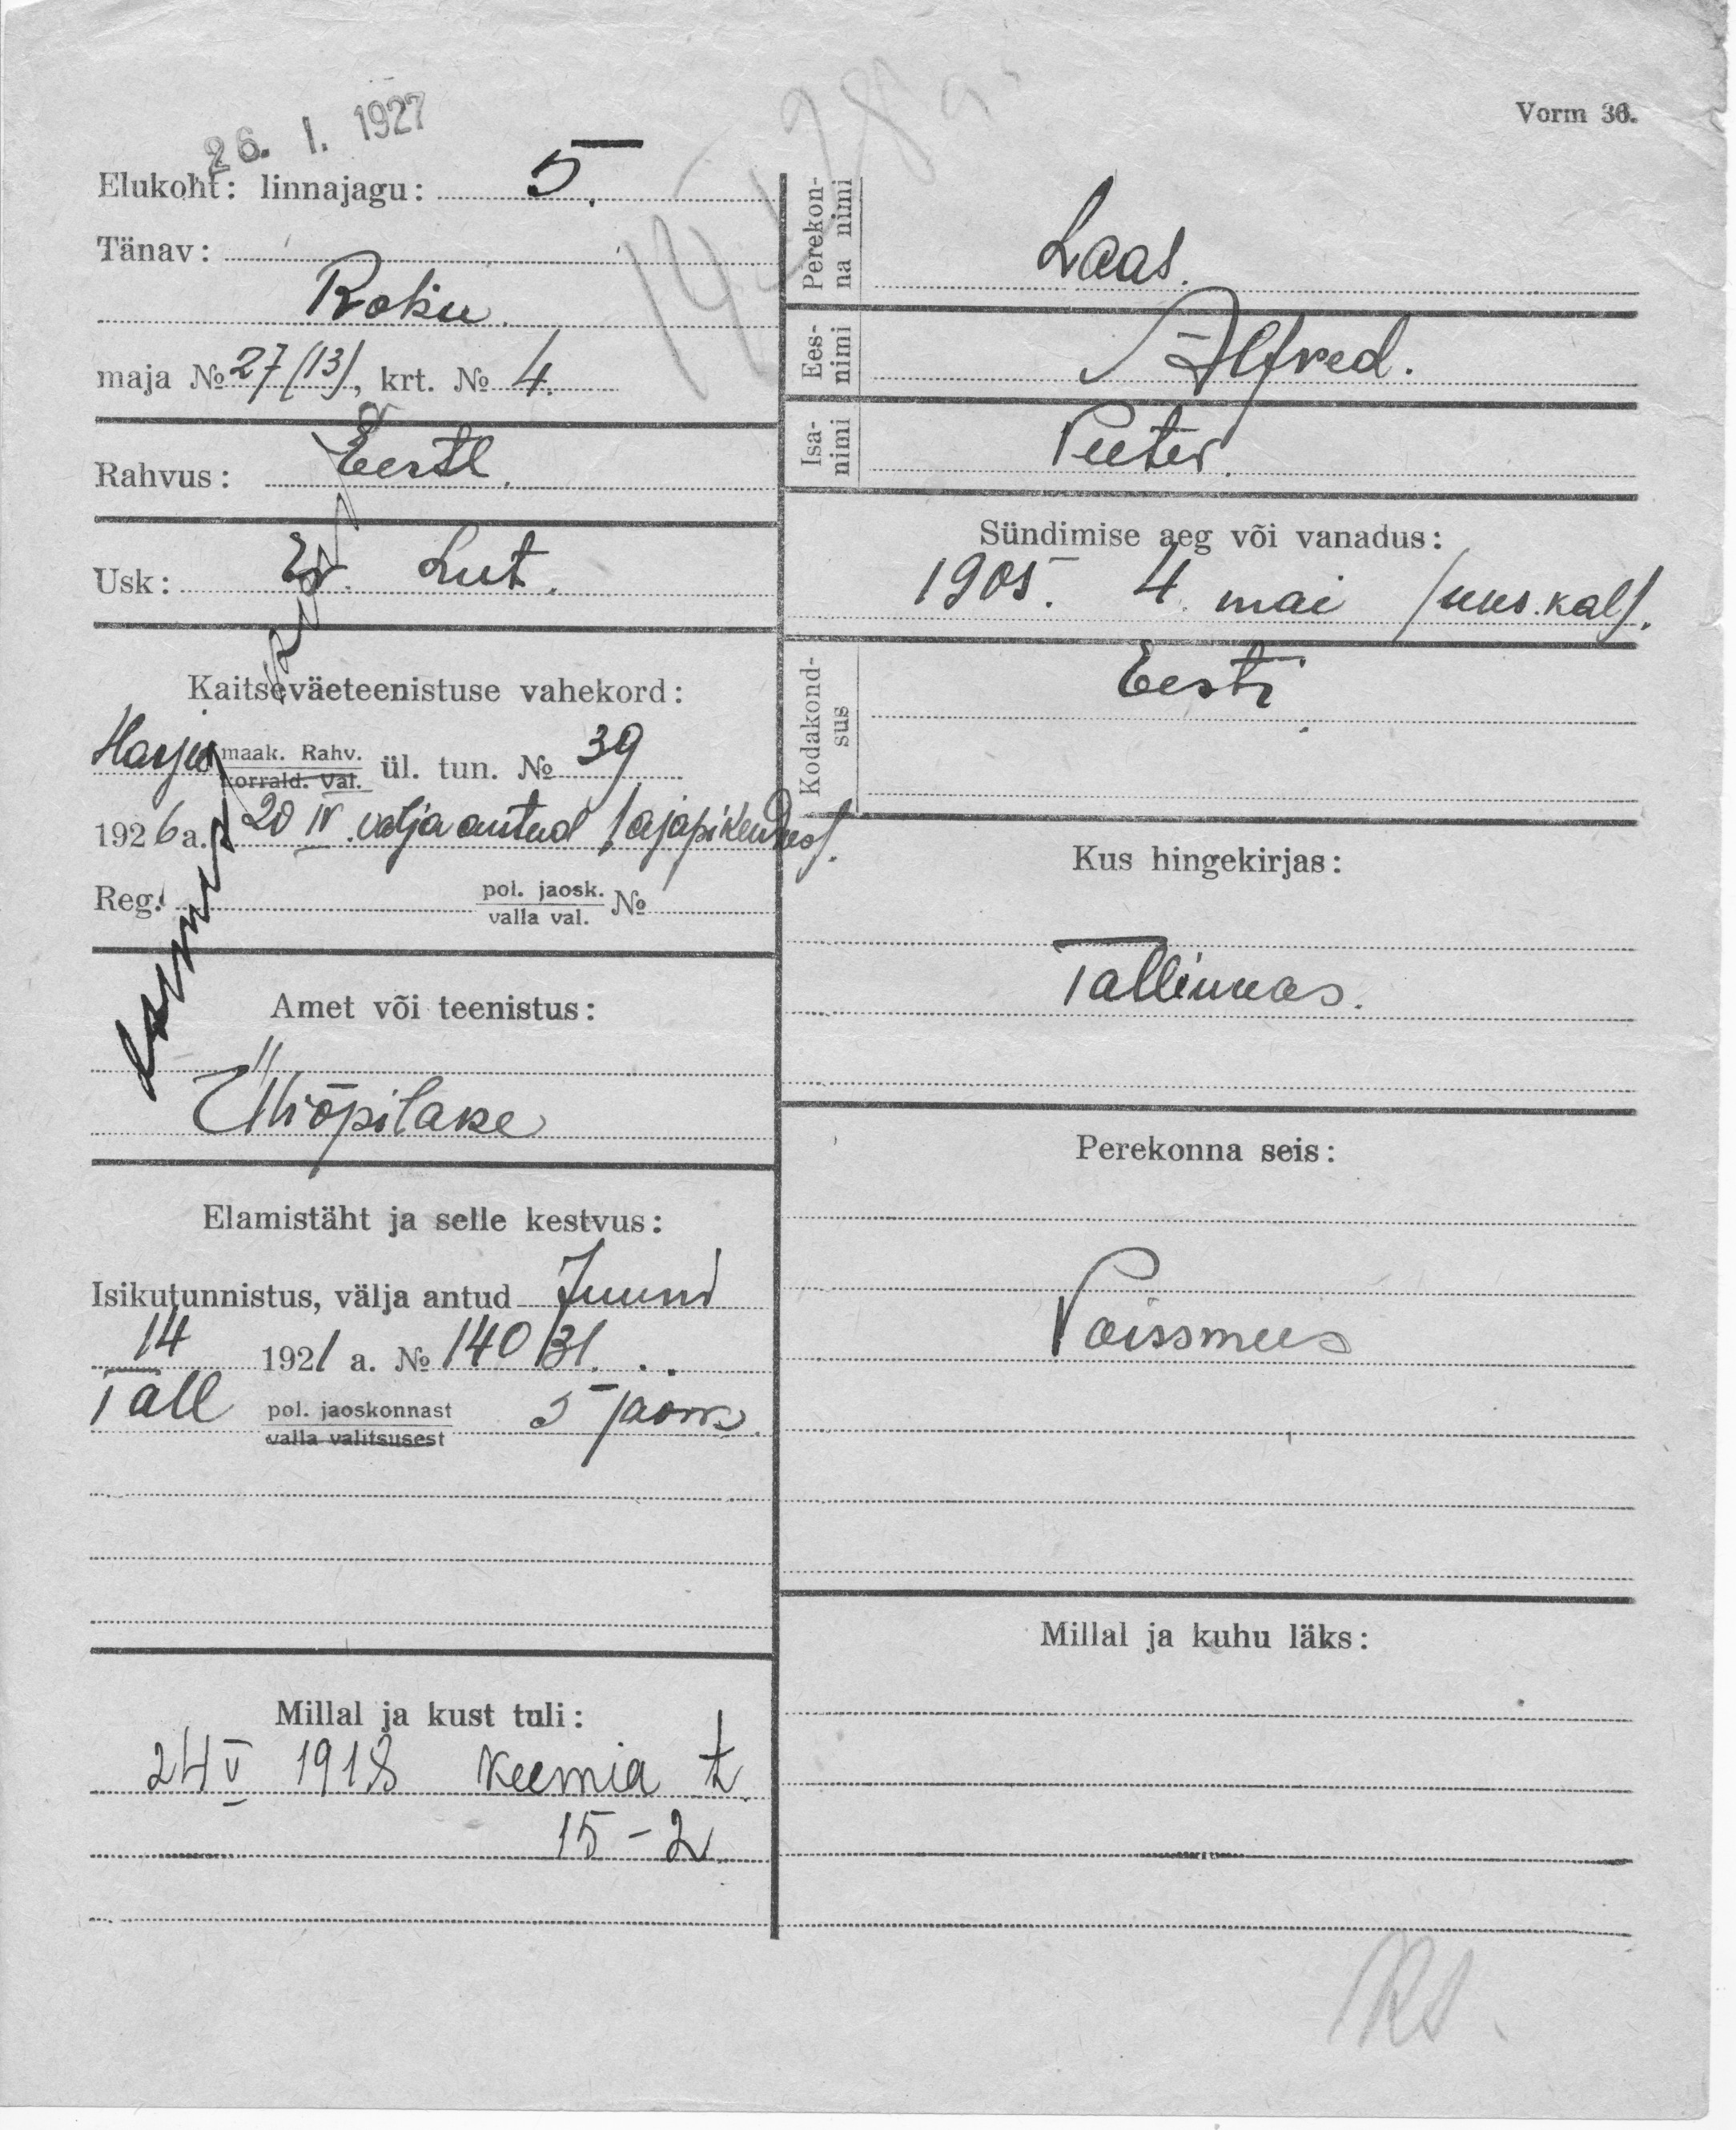 26. I. 1927
Vorm 36.
Elukoht: linnajagu: 5.
Tänav:
Roku.
maja № 27 (13), krt. № 4.
Rahvus: Eestl.
Usk: Ev. Lut.
Kaitseväeteenistuse vahekord:
Harju maak. Rahv. korrald. Val. ül. tun. № 39
1926 a. 20 IV. välja antud /ajapikendus/.
Reg. pol. jaosk. valla val. №
Amet või teenistus:
Üliõpilane
Elamistäht ja selle kestvus:
Isikutunnistus, välja antud Juuni
14 1921 a. № 140/31.
Tall pol. jaoskonnast 5 jaosk.
valla valitsusest
Millal ja kust tuli:
24 V 1918 Keemia t.
15-2
Perekonna nimi
Laas.
Eesnimi
Alfred.
Isanimi
Peeter.
Sündimise aeg või vanadus:
1905. 4. mai /uus.kal/.
Kodakondsus
Eesti.
Kus hingekirjas:
Tallinnas.
Perekonna seis:
Poissmees
Millal ja kuhu läks: